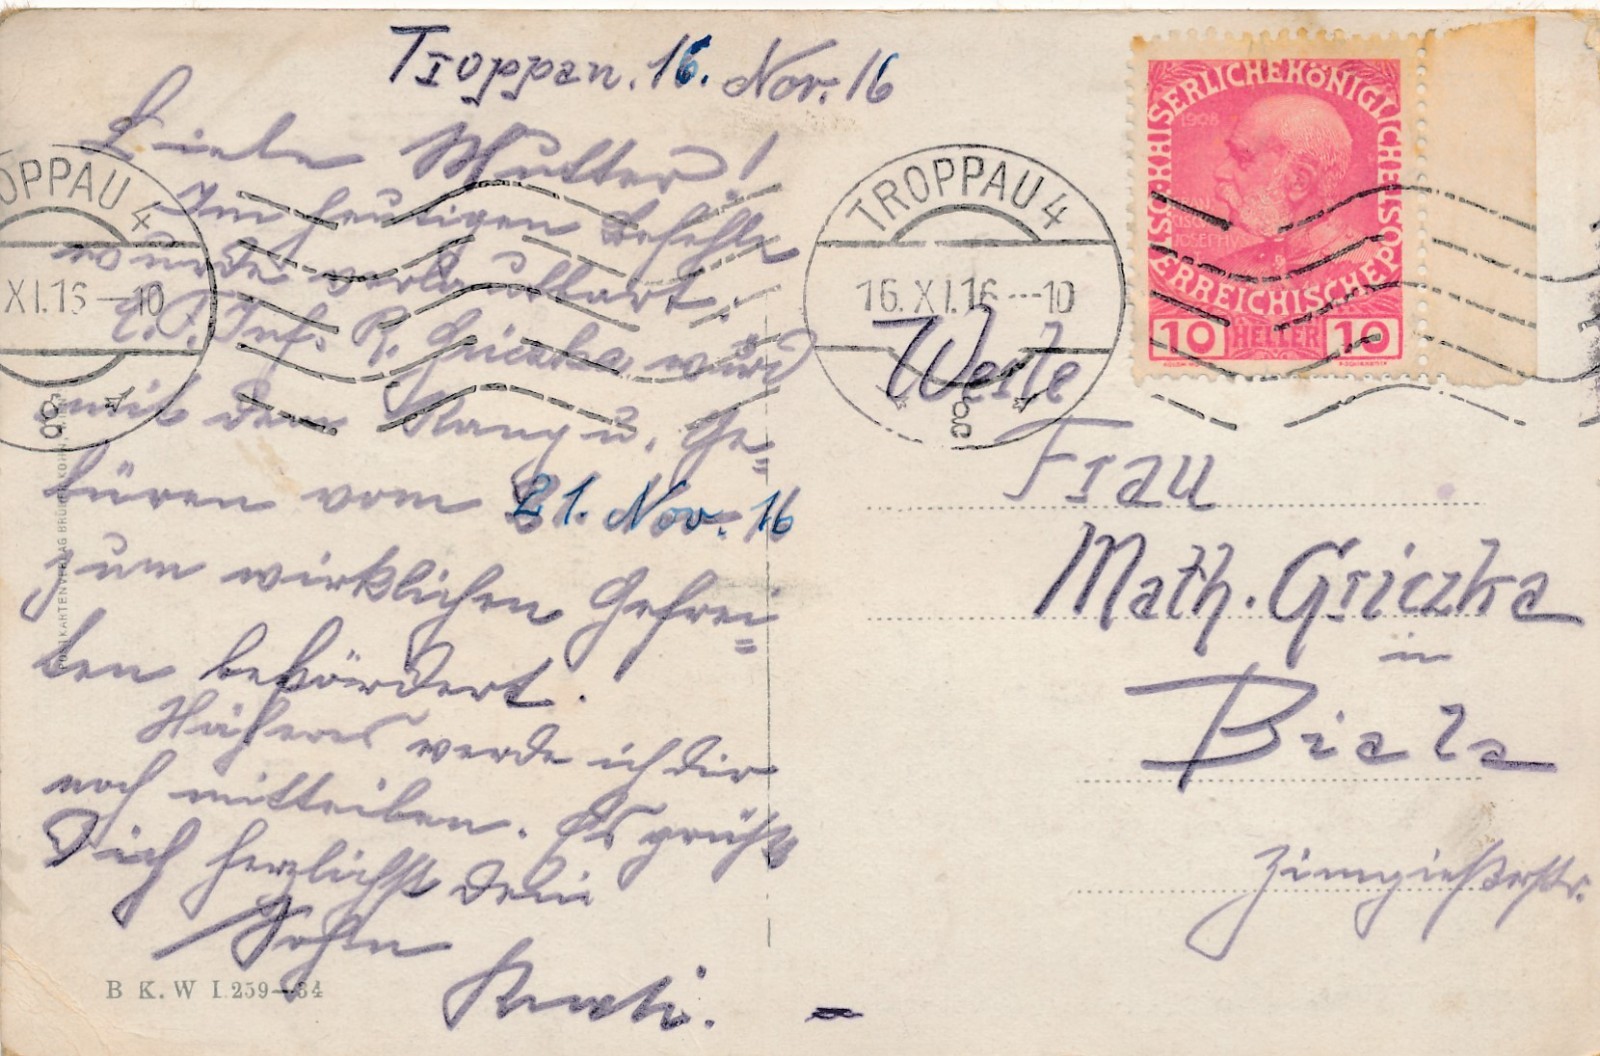 Troppau. 16. Nov. 16
Liebe Mutter!
Im heutigen Befehle
wurde verlautbart:
E. F. Inf. R. Griczka wird
mit dem Rang u. Ge=
büren vom 21. Nov. 16
zum wirklichen Gefrei=
ten befördert.
Näheres werde ich dir
noch mitteilen. Es grüßt
Dich herzlichst dein
Sohn
Rudi.
B K. W I. 259-34
POSTKARTENVERLAG BRÜDER KOHN, WIEN
TROPPAU 4
XI.16-10
TROPPAU 4
16.XI.16-10
KAISERLICHE KÖNIGLICHE ÖSTERREICHISCHE POST
1908
10 HELLER 10
Werte
Frau
Math. Griczka
in
Biala
Zinngießerstr.